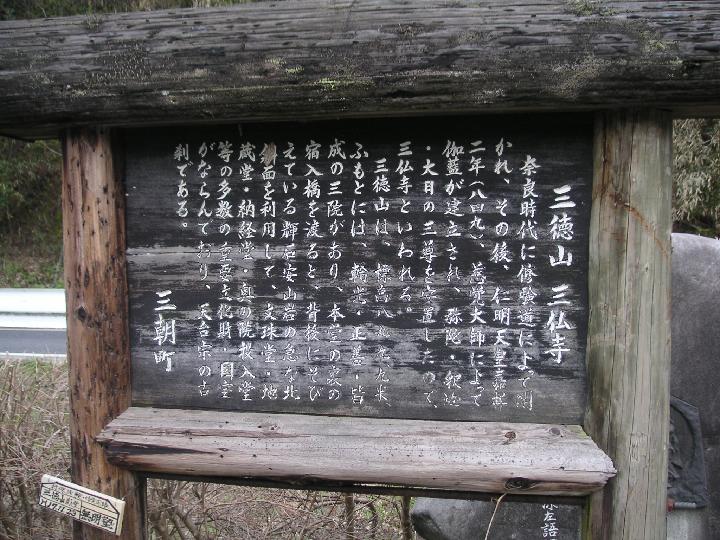 三徳山 三仏寺
奈良時代に修験道によって開
かれ、その後、仁明天皇嘉祥
二年(八四九)、慈覚大師によって
伽藍が建立され、弥陀・釈迦
・大日の三尊を安置したので、
三仏寺といわれる。
三徳山は、標高八九九.九米、
ふもとには、輪光・正善・皆
成の三院があり、本堂の裏の
宿入橋を渡ると、背後にそび
えている輝石安山岩の急な北
斜面を利用して、文珠堂・地
蔵堂・納経堂・奥の院投入堂
等の多数の重要文化財・国宝
がならんでおり、天台宗の古
刹である。
三朝町